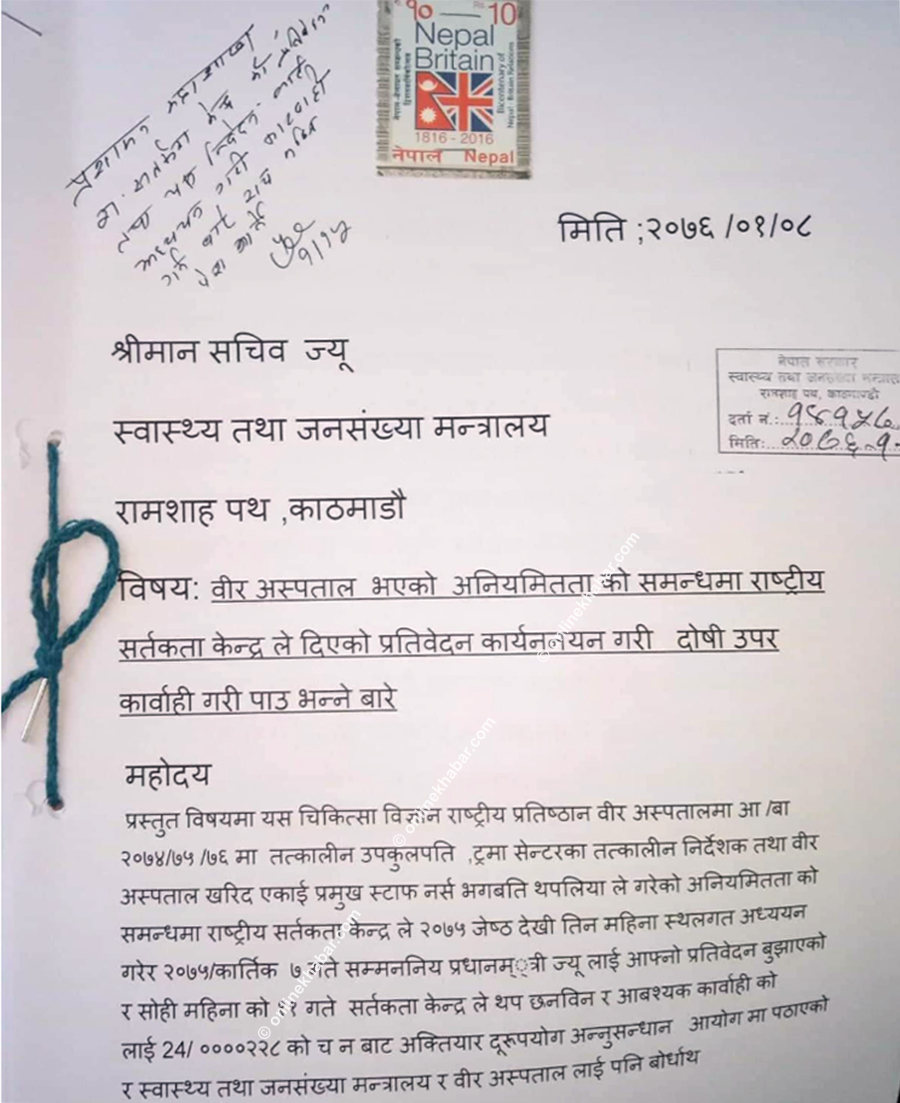 १० — Rs. 10
Nepal
Britain
Bicentenary of
Nepal - Britain Relations
1816 - 2016
नेपाल Nepal
प्रशासन महाशाखा
मिति ;२०७६ /०१/०८
श्रीमान सचिव ज्यू
नेपाल सरकार
स्वास्थ्य तथा जनसंख्या मन्त्राल
रामशाह पथ, काठमाण्डौ
दर्ता नं.:
मिति: २०७६-१-
स्वास्थ्य तथा जनसंख्या मन्त्रालय
रामशाह पथ ,काठमाडौ
विषय: वीर अस्पताल भएको अनियमितता को समन्धमा राष्ट्रीय
सर्तकता केन्द्र ले दिएको प्रतिवेदन कार्यननयन गरी दोषी उपर
कार्वाही गरी पाउ भन्ने बारे
महोदय
प्रस्तुत विषयमा यस चिकित्सा विज्ञान राष्ट्रीय प्रतिष्ठान वीर अस्पतालमा आ /बा
२०७४/७५ /७६ मा तत्कालीन उपकुलपति ,ट्रमा सेन्टरका तत्कालीन निर्देशक तथा वीर
अस्पताल खरिद एकाई प्रमुख स्टाफ नर्स भगबति थपलिया ले गरेको अनियमितता को
समन्धमा राष्ट्रीय सर्तकता केन्द्र ले २०७५ जेष्ठ देखी तिन महिना स्थलगत अध्ययन
गरेर २०७५/कार्तिक ७ गते सम्मननिय प्रधानम््त्री ज्यू लाई आफ्नो प्रतिवेदन बुझाएको
र सोही महिना को ११ गते सर्तकता केन्द्र ले थप छनविन र आबश्यक कार्वाही को
लाई 24/ ००००२२८ को च न बाट अक्तियार दूरूपयोग अन्नुसन्धान आयोग मा पठाएको
र स्वास्थ्य तथा जनसंख्या मन्त्रालय र वीर अस्पताल लाई पनि बोर्धाथ
© onlinekhabar.com
© onlinekhabar.com
© onlinekhabar.com